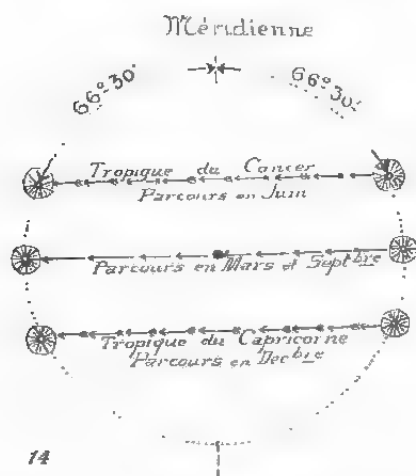 Méridienne
66°30'
66°30'
Tropique du Cancer
Parcours en Juin
Parcours en Mars et Septbre
Tropique du Capricorne
Parcours en Decbre
14